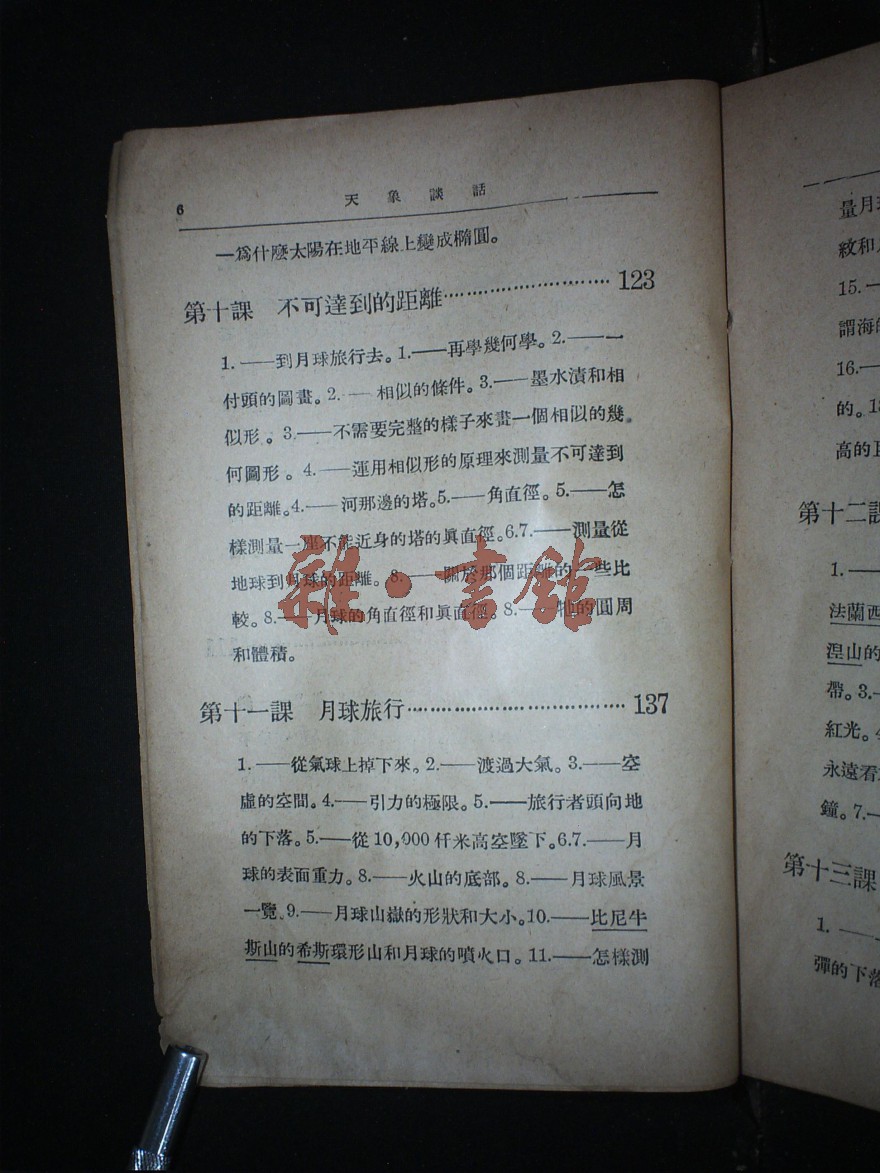 6 天象談話
—為什麼太陽在地平線上變成橢圓。
第十課 不可達到的距離⋯⋯⋯⋯⋯⋯⋯⋯ 123
1.——到月球旅行去。1.——再學幾何學。2.——一
付頭的圖畫。2.——相似的條件。3.——墨水漬和相
似形。3.——不需要完整的樣子來畫一個相似的幾。
何圖形。4.——運用相似形的原理來測量不可達到
的距離。4.——河那邊的塔。5.——角直徑。5.——怎
樣測量一座不能近身的塔的眞直徑。6.7.——測量從
地球到月球的距離。8.——關於那個距離的一些比
較。8.——月球的角直徑和眞直徑。8.——牠的圓周
和體積。
雜·書館
第十一課 月球旅行⋯⋯⋯⋯⋯⋯⋯⋯⋯⋯ 137
1.——從氣球上掉下來。2.——渡過大氣。3.——空
虛的空間。4.——引力的極限。5.——旅行者頭向地
的下落。5.——從10,000仟米高空墜下。6.7.——月
球的表面重力。8.——火山的底部。8.——月球風景
一覽。9.——月球山嶽的形狀和大小。10.——比尼牛
斯山的希斯環形山和月球的噴火口。11.——怎樣測
量月
紋和
15.—
謂海
16.—
的。1
高的
第十二課
1.—
法蘭西
涅山的
帶。3.—
紅光。
永遠看
鐘。7.—
第十三課
1.——
彈的下落